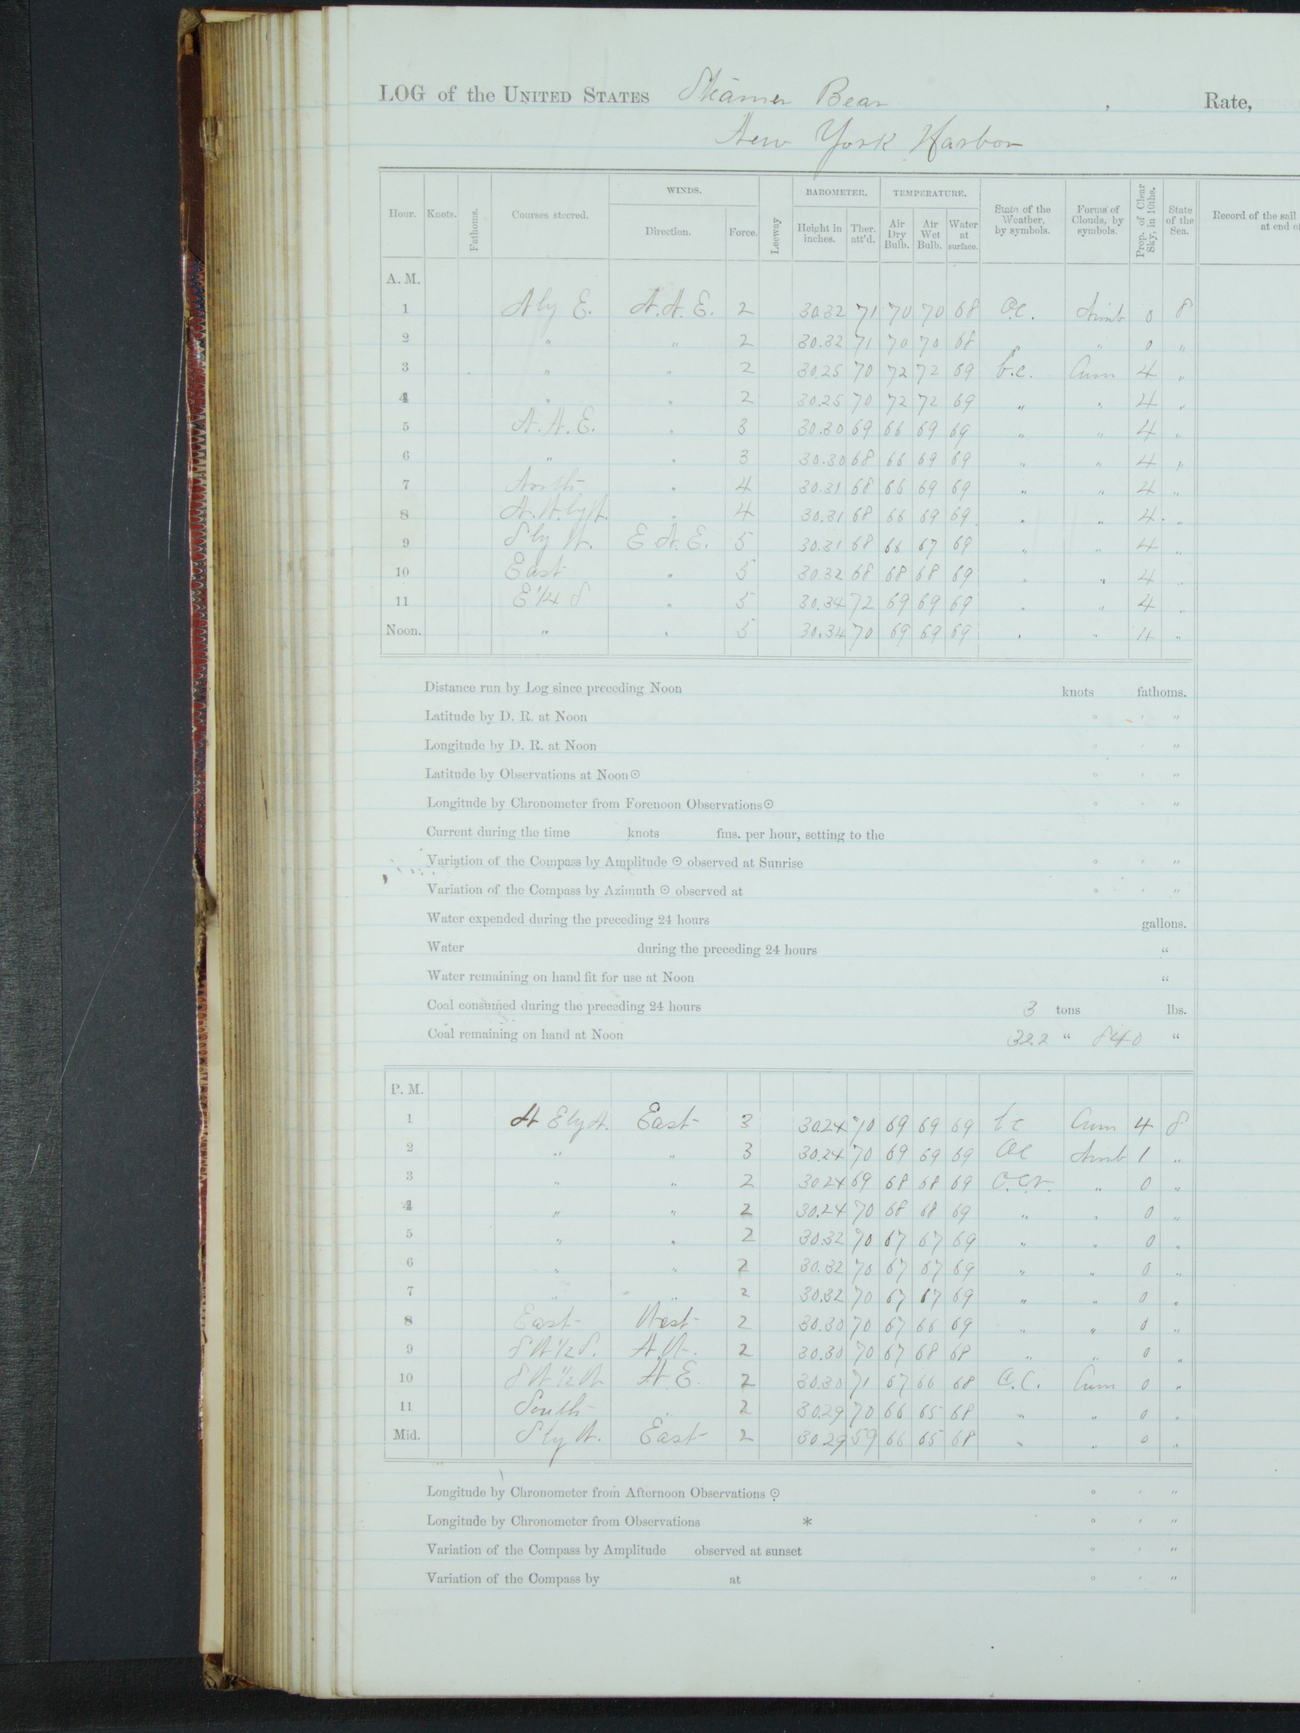 LOG of the UNITED STATES Steamer Bear , Rate,
New York Harbor
Hour. Knots. Fathoms. Courses steered. WINDS. Direction. Force. Leeway BAROMETER. Height in inches. Ther. att'd. TEMPERATURE. Air Dry Bulb. Air Wet Bulb. Water at surface. State of the Weather, by symbols. Forms of Clouds, by symbols. Prop. of Clear Sky, in 10ths. State of the Sea. Record of the sail at end of
A. M.
1 N by E. N.N.E. 2 30.32 71 70 70 68 O.C. Nimb 0 S
2 " " 2 30.32 71 70 70 68 " " 0 "
3 " " 2 30.25 70 72 72 69 b.c. Cum 4 "
4 " " 2 30.25 70 72 72 69 " " 4 "
5 N.N.E. " 3 30.30 69 66 69 69 " " 4 "
6 " " 3 30.30 68 66 69 69 " " 4 "
7 North " 4 30.31 68 66 69 69 " " 4 "
8 " 4 30.31 68 66 69 69 " " 4 "
9 S by W. E N.E. 5 30.31 68 66 67 69 " " 4 "
10 East " 5 30.32 68 68 68 69 " " 4 "
11 E 1/4 S " 5 30.34 72 69 69 69 " " 4 "
Noon. " " 5 30.34 70 69 69 69 " " 4 "
Distance run by Log since preceding Noon knots fathoms.
Latitude by D. R. at Noon ° ' "
Longitude by D. R. at Noon ° ' "
Latitude by Observations at Noon ☉ ° ' "
Longitude by Chronometer from Forenoon Observations ☉ ° ' "
Current during the time knots fms. per hour, setting to the
Variation of the Compass by Amplitude ☉ observed at Sunrise ° ' "
Variation of the Compass by Azimuth ☉ observed at ° ' "
Water expended during the preceding 24 hours gallons.
Water during the preceding 24 hours "
Water remaining on hand fit for use at Noon "
Coal consumed during the preceding 24 hours 3 tons lbs.
Coal remaining on hand at Noon 322 " 840 "
P. M.
1 N E by N. East 3 30.24 70 69 69 69 bc Cum 4 S
2 " " 3 30.24 70 69 69 69 OC Nimb 1 "
3 " " 2 30.24 69 68 68 69 O.C.r. " 0 "
4 " " 2 30.24 70 68 68 69 " " 0 "
5 " " 2 30.32 70 67 67 69 " " 0 "
6 " " 2 30.32 70 67 67 69 " " 0 "
7 " " 2 30.32 70 67 67 69 " " 0 "
8 East West 2 30.30 70 67 66 69 " " 0 "
9 S W 1/2 S. N W. 2 30.30 70 67 68 68 " " 0 "
10 S W 1/2 W N E. 2 30.30 71 67 66 68 O.C. Cum 0 "
11 South " 2 30.29 70 66 65 68 " " 0 "
Mid. S by W. East 2 30.29 59 66 65 68 " " 0 "
Longitude by Chronometer from Afternoon Observations ☉ ° ' "
Longitude by Chronometer from Observations * ° ' "
Variation of the Compass by Amplitude observed at sunset ° ' "
Variation of the Compass by at ° ' "